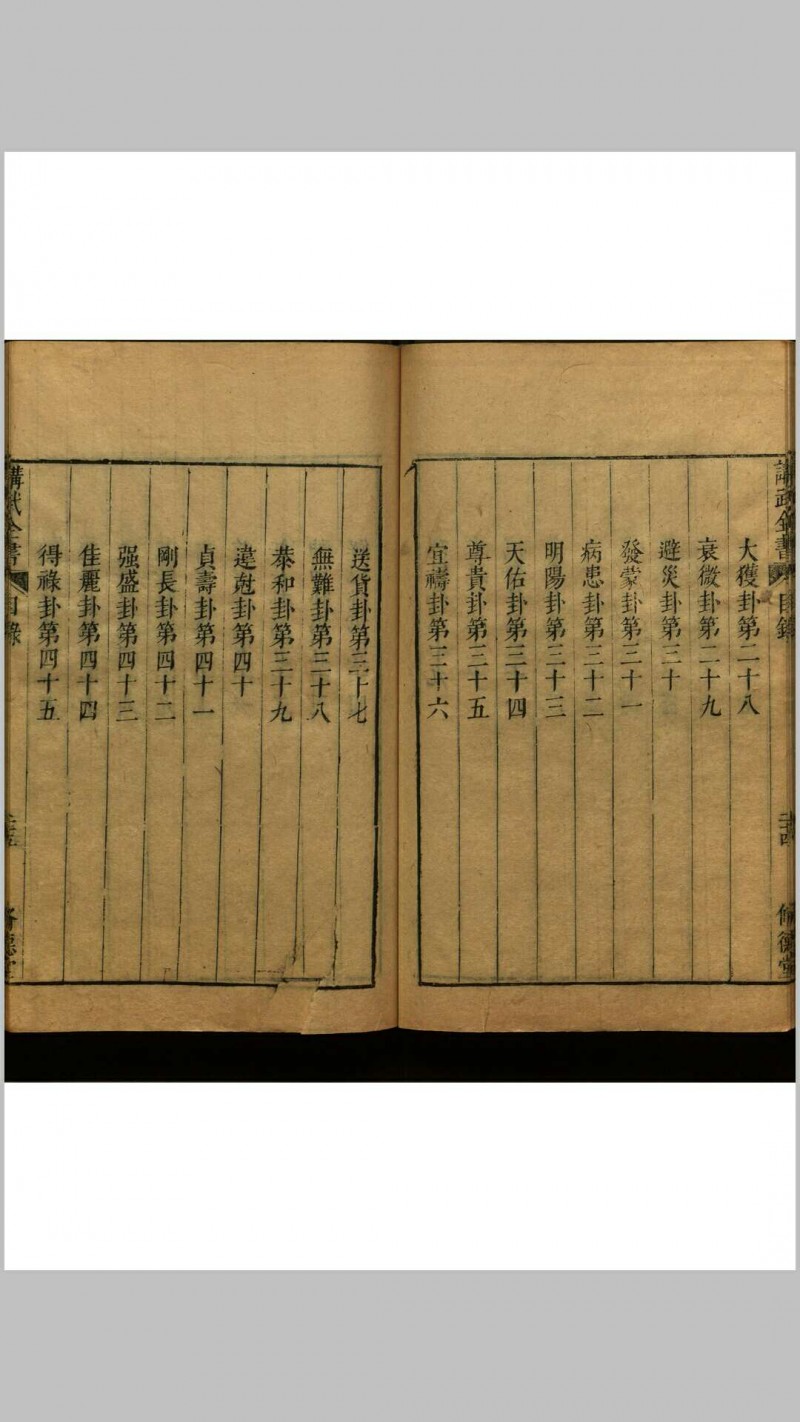 講武全書
目錄
二十四
脩德堂
大獲卦第二十八
衰微卦第二十九
避災卦第三十
發蒙卦第三十一
病患卦第三十二
明陽卦第三十三
天佑卦第三十四
尊貴卦第三十五
宜禱卦第三十六
送貨卦第三十七
無難卦第三十八
泰和卦第三十九
違尅卦第四十
貞壽卦第四十一
剛長卦第四十二
强盛卦第四十三
佳麗卦第四十四
得祿卦第四十五
講武全書
目錄